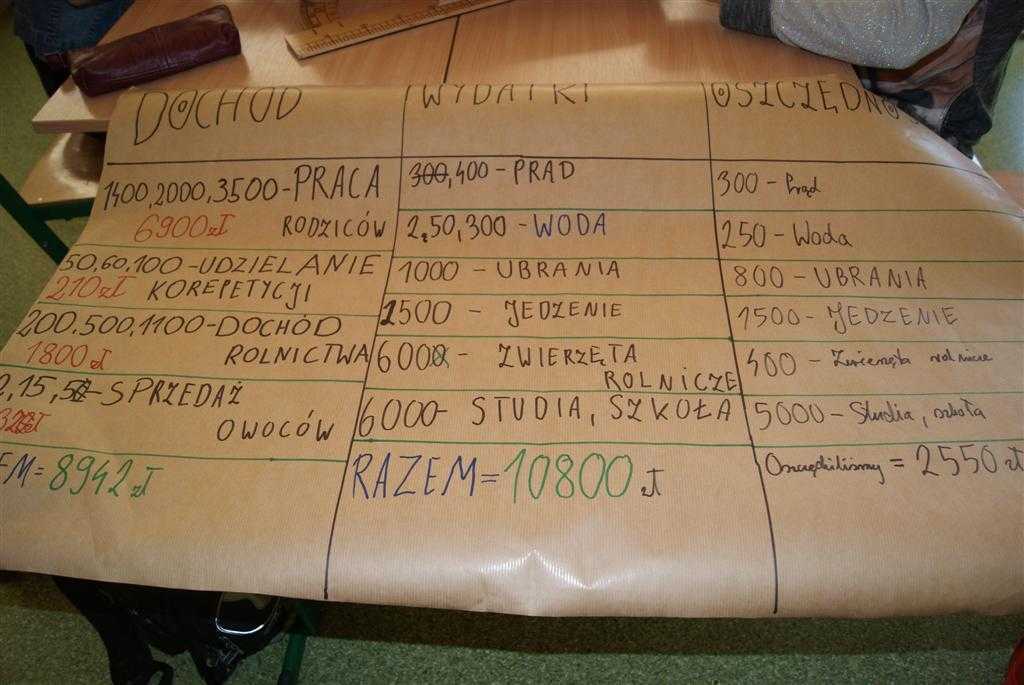 DOCHÓD
1400,2000,3500-PRACA
6900zł RODZICÓW
50,60,100-UDZIELANIE
210zł KOREPETYCJI
200,500,1100-DOCHÓD
1800zł ROLNICTWA
2,15,5 - SPRZEDAŻ
OWOCÓW
EM=8942zł
WYDATKI
300,400-PRĄD
2,50,300-WODA
1000-UBRANIA
2500-JEDZENIE
600-ZWIERZĘTA
ROLNICZE
6000-STUDIA, SZKOŁA
RAZEM=10800zł
OSZCZĘDNO
300-Prąd
250-Woda
800-UBRANIA
1500-JEDZENIE
400-Zwierzęta rolnicze
5000-Studia, szkoła
Oszczędziliśmy = 2550zł